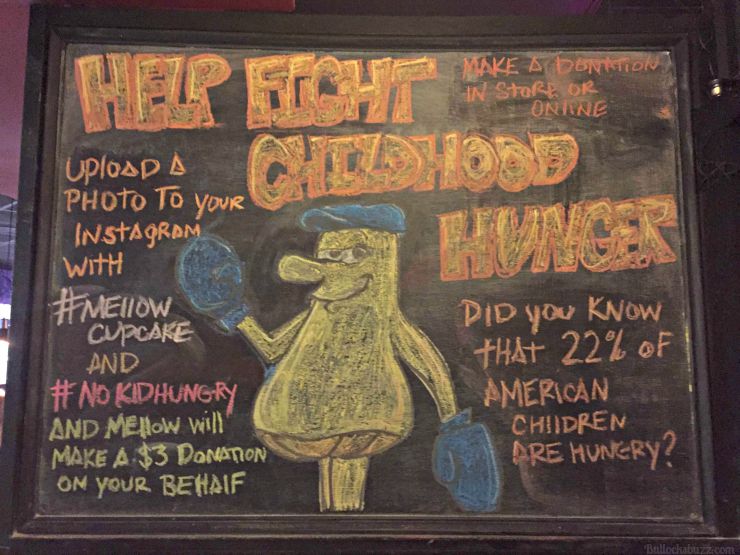 HELP FIGHT
CHILDHOOD
HUNGER
MAKE A DONATION
IN STORE OR
ONLINE
UPLOAD A
PHOTO TO YOUR
INSTAGRAM
WITH
#MEllOW
CUPCAKE
AND
# NO KIDHUNGRY
AND MEllOW will
MAKE A $3 DONATION
ON YOUR BEHAlF
DID YOU KNOW
tHAt 22% OF
AMERICAN
CHIlDREN
ARE HUNGRY?
Bullockabuzz.com